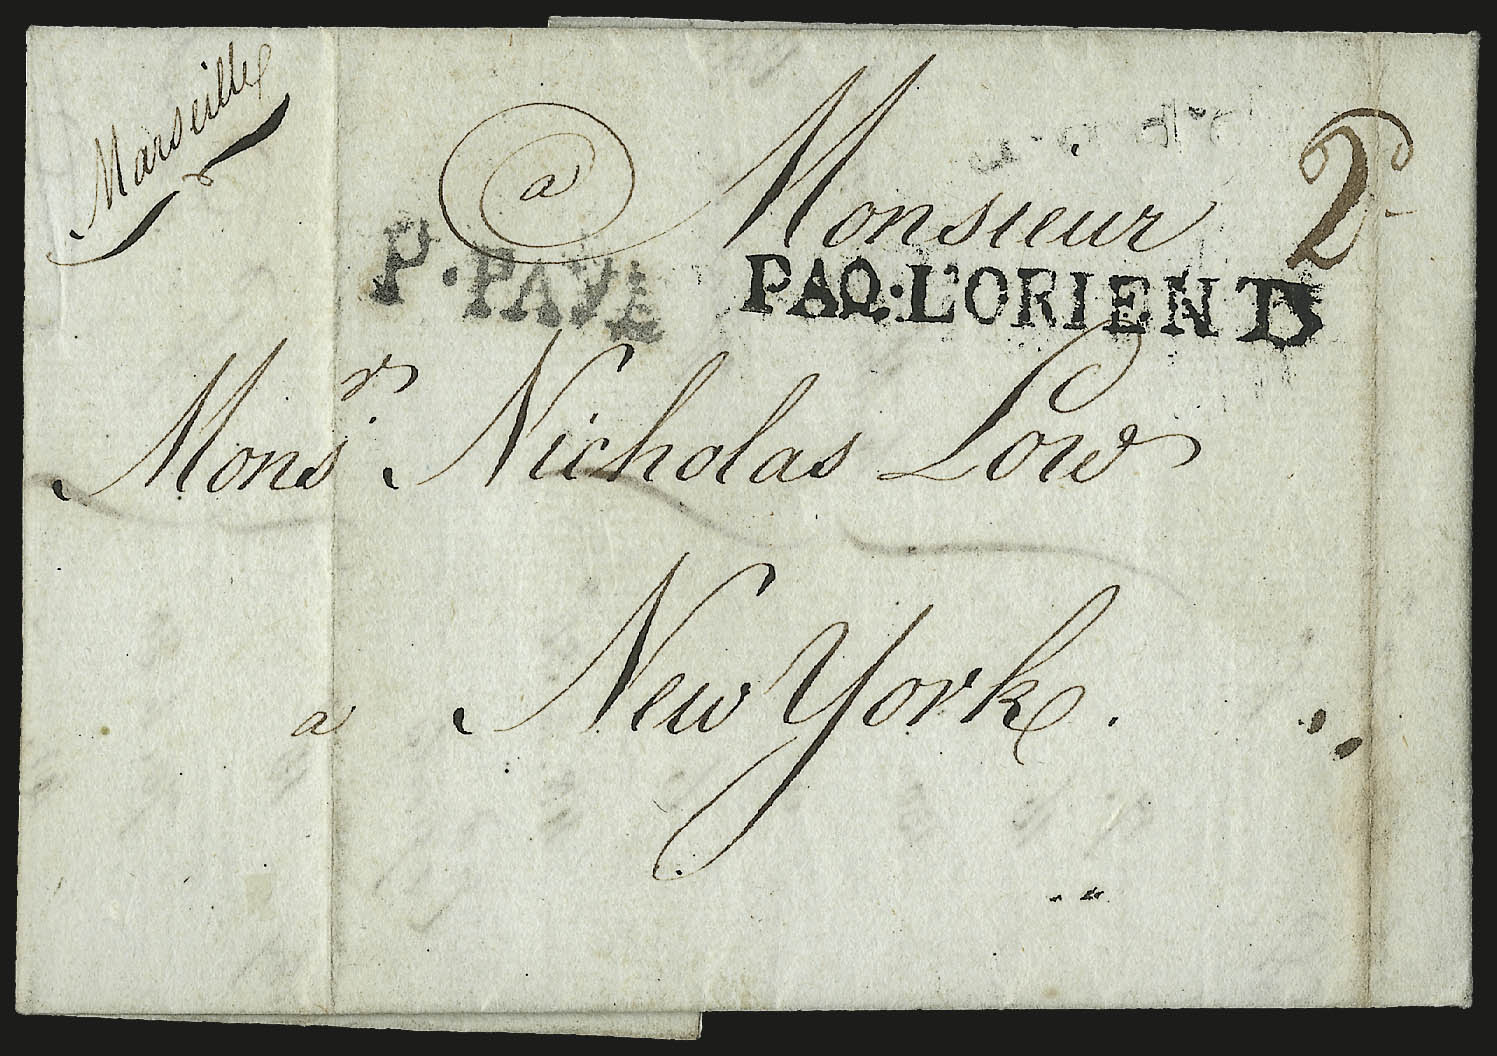 Marseille
a Monsieur
2d
P·PAYÉ
PAQ·L'ORIENT
Monsr. Nicholas Low
a New York.